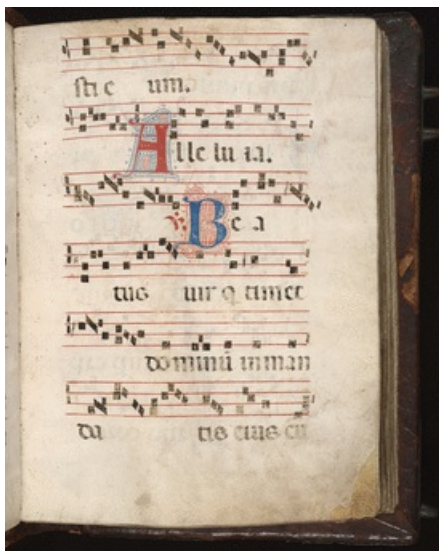 sti e um.
Alle lu ia.
℣. Be a
tus uir q timet
dominū in man
da tis eius cu